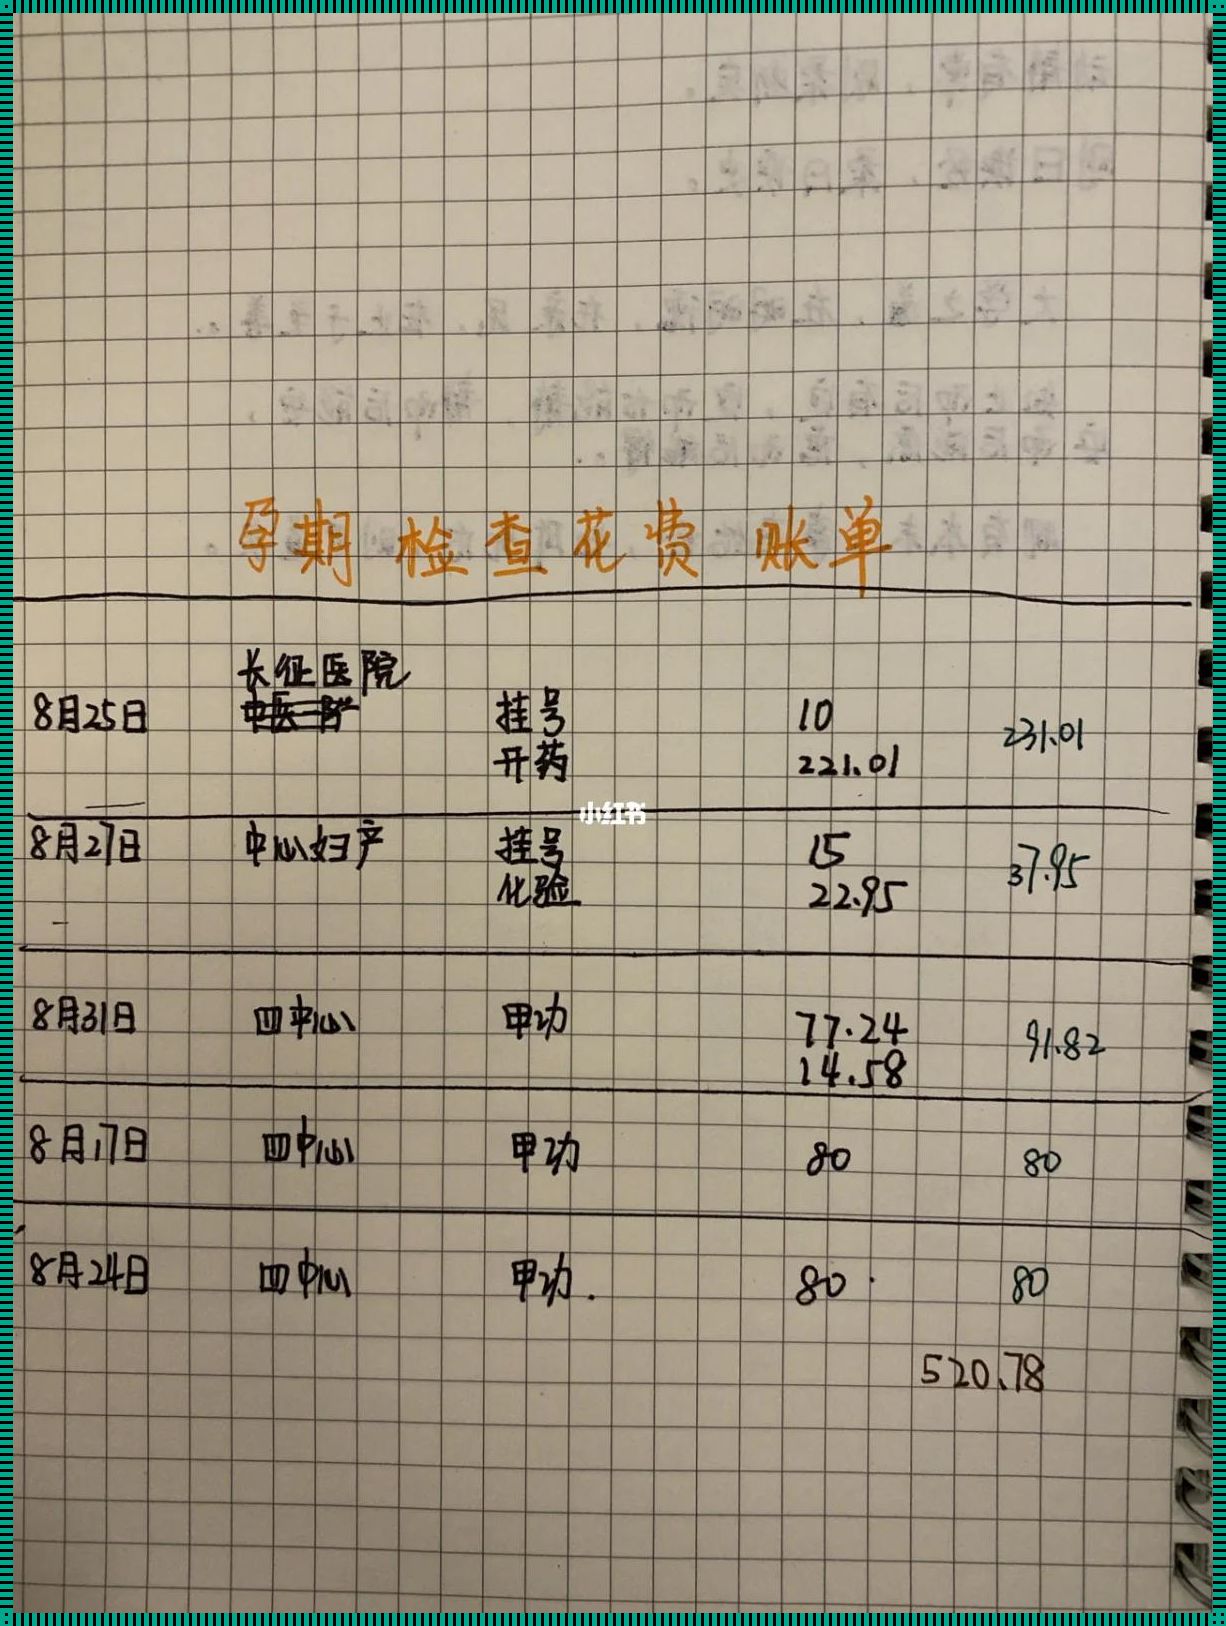 孕期检查花费账单
长征医院
8月25日 挂号 10 231.01
开药 221.01
小红书
8月27日 中心妇产 挂号 15 37.95
化验 22.95
8月31日 四中心 甲功 77.24 91.82
14.58
8月17日 四中心 甲功 80 80
8月24日 四中心 甲功. 80 80
520.78